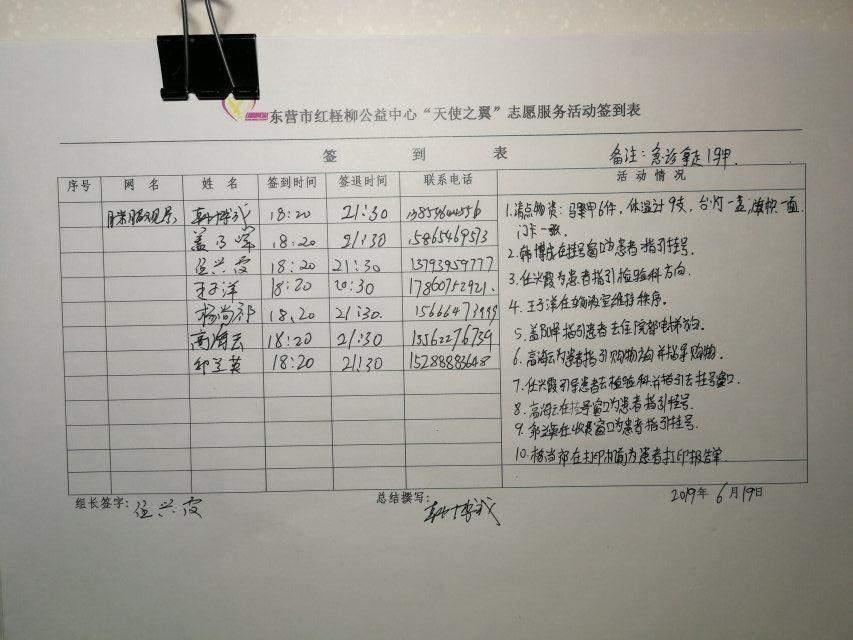 东营市红柽柳公益中心“天使之翼”志愿服务活动签到表
签 到 表
备注：急诊拿走1马甲.
序号 网 名 姓 名 签到时间 签退时间 联系电话 活 动 情 况
韩博武 18:20 21:30
18:20 21:30 15865469513
任兴霞 18:20 21:30 13793959777
王子洋 18:20 20:30 17860752921.
杨尚郗 18.20 21:30. 15666473999
高海云 18:20 21:30 13562276739
18:20 21:30 15288883648
1.清点物资：马甲6件，体温计9支，台灯一盏,旗帜一面
门卡一张.
2.韩博武在挂号窗口为患者指引挂号.
3.任兴霞为患者指引检验科方向.
4.王子洋在输液室维持秩序.
5.指引患者去住院部电梯方向.
6.高海云为患者指引购物方向并指导购物.
7.任兴霞引导患者去检验科并指引去挂号窗口.
8.高海云在挂号窗口为患者指引挂号.
9.在收费窗口为患者指引挂号.
10.杨尚郗在打印机前为患者打印报告单.
组长签字：任兴霞
总结撰写：韩博武
2019年6月19日